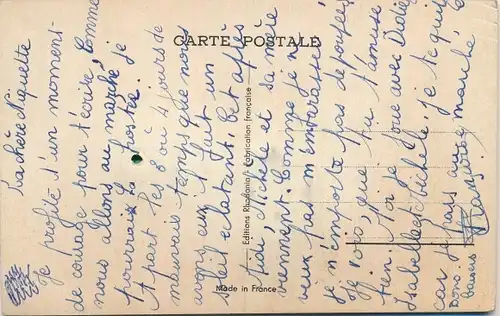 CARTE POSTALE
Editions Rhodania - Fabrication française
Made in France
Ma chère Niquette
Je profite d'un moment
de courage pour t'écrire. Comme
nous allons au marché je
pourrais la poster.
A part les 3 ou 4 jours de
mauvais temps que nous
avons eu il fait un
soleil éclatant. Cet après
midi, Michèle et sa mère
viennent. Comme je ne
veux pas m'embarrasser
je n'emporte pas de poupées
Je vois que tu t'amuse
bien. Moi je joue avec Didier
Isabelle, Michèle. Je te quitte
car je pars au marché.
Bons baisers
Françoise